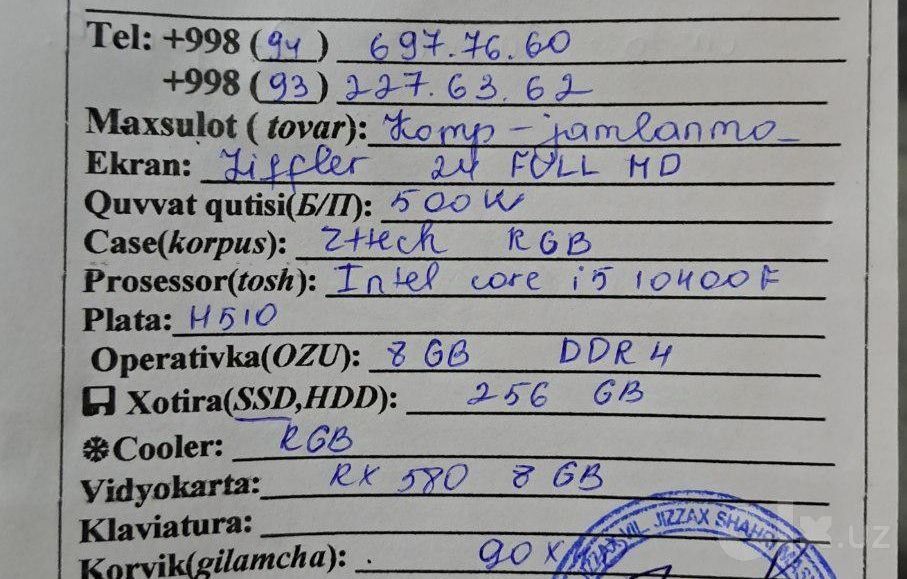 Tel: +998 (94) 697.76.60
+998 (93) 227.63.62
Maxsulot ( tovar): Komp - jamlanma
Ekran: Ziffler 24 FULL HD
Quvvat qutisi(Б/П): 500W
Case(korpus): 2Htech RGB
Prosessor(tosh): Intel core i5 10400F
Plata: H510
Operativka(OZU): 8 GB DDR4
Xotira(SSD,HDD): 256 GB
Cooler: RGB
Vidyokarta: RX 580 8 GB
Klaviatura:
Korvik(gilamcha): . 90 x
JIZZAX VIL. JIZZAX SHAHRI
.uz